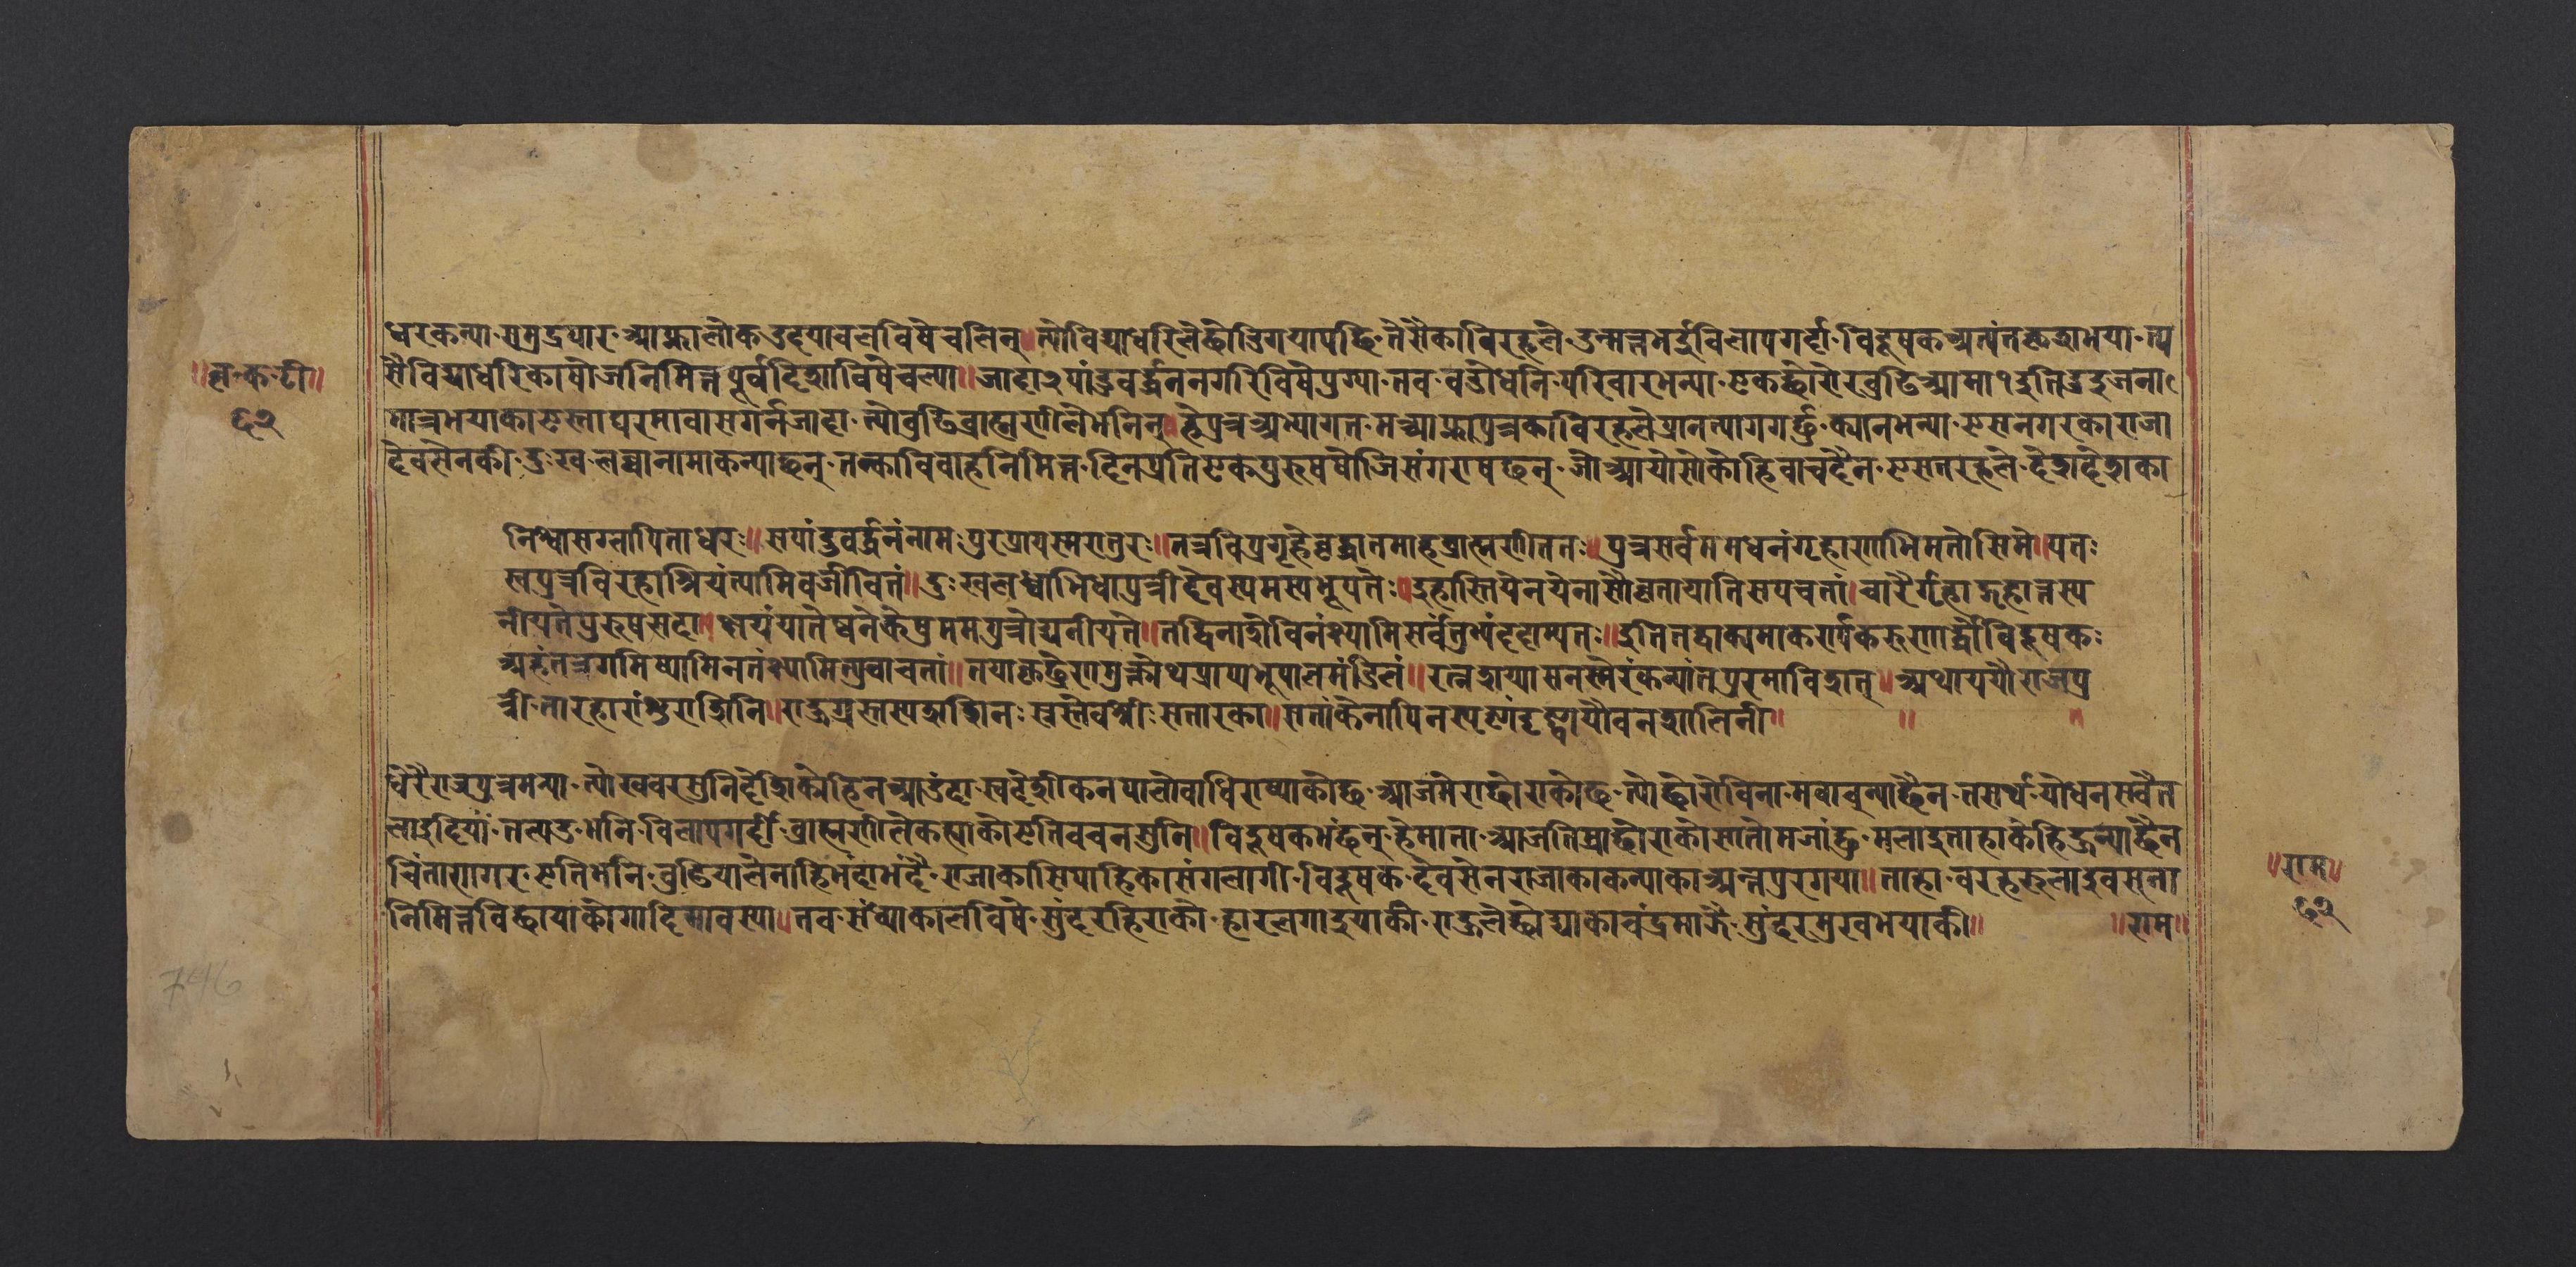 धरकन्या समुद्रपार आफ्नालोक उदयाचलविषे चलिन्॥ त्योविद्याधरिलेछोडिगयापछि तेसैकाविरहले उन्मत्तभईविलापगर्दा विदूषक अत्यंतकृशभया त्य
॥बृ॰क॰टी॥
सैविद्याधरिकाषोजनिमित्त पूर्वदिशाविषेचल्या॥ जादा२पांडुवर्द्धननगरिविषेपुग्या तब बडोधनि परिवारभन्या एकछोरोरबुढिआमा१दुतिइदुजना
६२
मात्रभयाका एस्ताघरमावासगर्नजादा त्योबुढिब्राह्मणीलेभनिन्॥ हेपुत्रअभ्यागत मआफ्नापुत्रकाविरहलेप्रानत्यागगर्छु क्यानभन्या एसनगरकाराजा
देवसेनकी दुःखलब्धानामाकन्याछन् तन्काविवाहनिमित्त दिनप्रतिएकपुरुषषोजिसंगराषछन् जोआयोसोकोहिवाचदैन एसतरहले देशदेशका
निश्वासग्लापिताधरः॥ सपांडुवर्द्धनंनामपुरप्रायस्मरातुरः॥ तत्रविप्रगृहेवृद्धातमाहब्राह्मणीततः॥ पुत्रसर्वंममधनंगृहाणाभिमतोसिमे॥ यतः
स्वपुत्रविरहाश्रियंत्यामिवजीवितं॥ दुःखलब्धाभिधापुत्रीदेवस्यमस्यभूपतेः॥ इहास्तियेनयेनासौवृतायातिसपंचतां॥ चारैर्गृहाद्गृहात्तस्य
नीयतेपुरुषसदा॥ क्षयंयातेष्वनेकेषुममपुत्रोद्यनीयते॥ तद्विनाशेविनंक्ष्यामिसर्वंतुभ्यंददाम्यतः॥ इतितद्वाक्यमाकर्ण्यकरुणार्द्रोविदूषकः
अहंतत्रगमिष्यामिनतंक्ष्यामित्युवाचतां॥ तयाकृच्छ्रेणमुक्तोथप्राप्यभूपालमंडिलं॥ रत्नशय्यासनस्मेरंकन्यांतःपुरमाविशत्॥ अथाययौराजपु
त्री तारहारांशुराशिनि॥ राहुग्रस्तस्यशशिनः स्रस्तेवश्रीःसतारका॥ सतांकेनापिनस्पृष्टांदृष्ट्वायौवनशालिनी॥ ॥ ॥
धेरैराजपुत्रमन्या त्योखबरसुनिदेशिकोहिनआउंदा स्वदेशीकनपालोवाधिराष्याकोछ आजमेराछोराकोछ त्योछोरोविना मबाचन्याछैन तसर्थ योधनसबैत
लाइदियां तल्यउ भनि विलापगर्दी ब्राह्मणीलेकह्याकोएतिवचनसुनि॥ विदूषकभंछन् हेमाता आजतिम्राछोराकोसातोमजांछु मलाइताहाकेहिहुन्याछैन
चिंतासागर एतिभनि बुढियालेनाहिभंदाभंदै राजाकासिपाहिकासंगलागी विदूषक देवसेनराजाकाकन्याका अन्तपुरगया॥ ताहा वरहरूलाइबसना
॥राम॥
निमित्तविछायाकोगादिमाबस्या॥ तब संध्याकालविषे सुंदरहिराको हारलगाइयाकी राहुलेछोड्याकाचंद्रमाझै सुंदरमुखभयाकी॥ ॥राम॥
६२
746